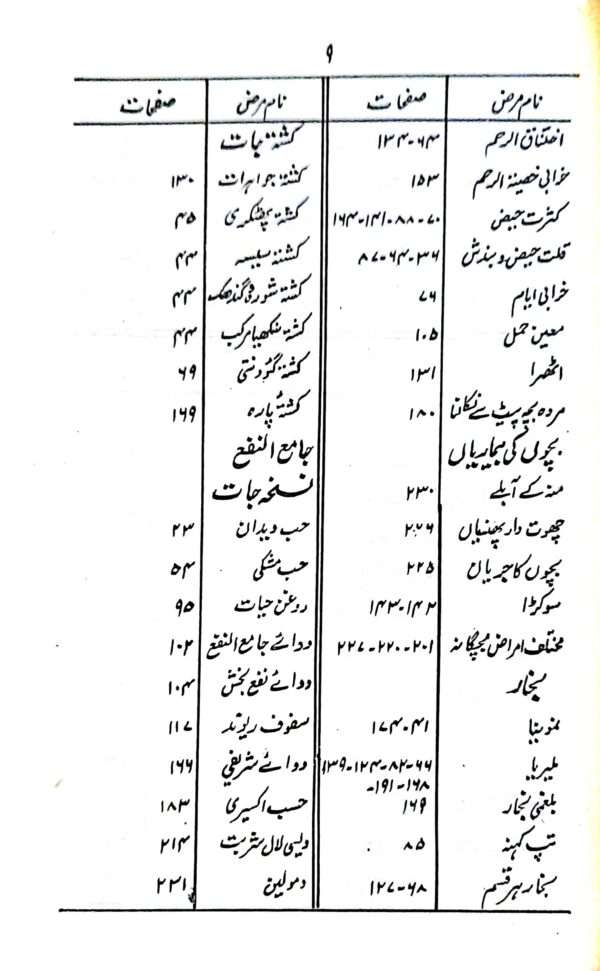 ۹
نام مرض صفحات
اختناق الرحم ۶۴-۱۳۴
خرابی خصیۃ الرحم ۱۵۳
کثرت حیض ۷۰-۸۸-۱۴۱-۱۶۴
قلت حیض و بندش ۳۶-۶۴-۸۷
خرابی ایام ۷۶
معین حمل ۱۰۵
اٹھرا ۱۳۱
مردہ بچہ پیٹ سے نکالنا ۱۸۰
بچوں کی بیماریاں
منہ کے آبلے ۲۳۰
چھوت دار پھنسیاں ۲۲۶
بچوں کا جریان ۲۲۵
سوکڑا ۱۴۲-۱۴۳
مختلف امراض بچگانہ ۲۰۱-۲۲۰-۲۲۷
بخار
نمونیا ۴۱-۱۷۴
ملیریا ۶۶-۸۲-۱۲۴-۱۳۹
۱۶۸-۱۹۱-
بلغمی بخار ۱۶۹
تپ کہنہ ۸۵
بخار ہر قسم ۶۸-۱۲۷
نام مرض صفحات
کشتہ جات
کشتہ جواہرات ۱۳۰
کشتہ پھٹکری ۴۵
کشتہ سیسہ ۴۴
کشتہ شورہ گندھک ۴۴
کشتہ سنکھیا مرکب ۴۴
کشتہ گئودنتی ۶۹
کشتہ پارہ ۱۶۹
جامع النفع
نسخہ جات
حب ویدان ۲۳
حب مشکی ۵۴
روغن حیات ۹۵
دوائے جامع النفع ۱۰۲
دوائے نفع بخش ۱۰۴
سفوف ریوند ۱۱۷
دوائے شریفی ۱۶۶
حسب اکسیری ۱۸۳
دیسی لال شربت ۲۱۴
دمولین ۲۳۱